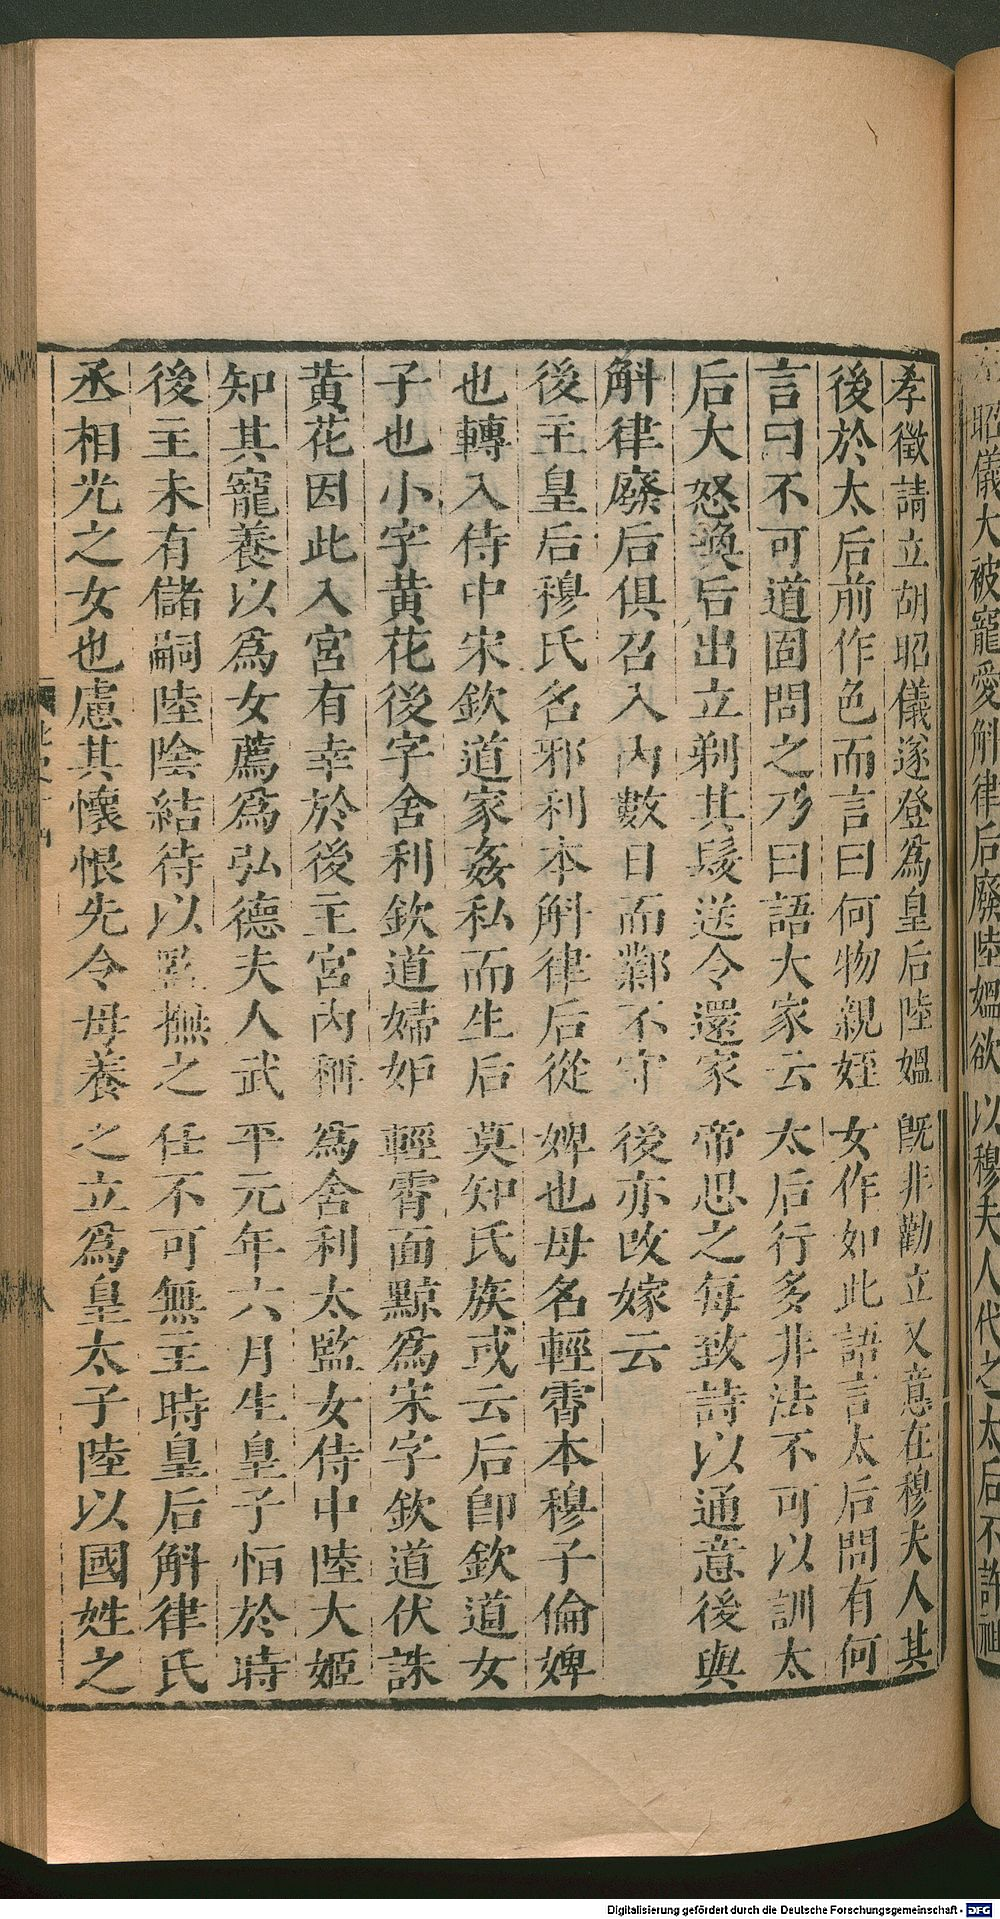 昭儀大被寵愛斛律后廢陸媼欲以穆夫人代之太后不許祖
孝徵請立胡昭儀遂登為皇后陸媼既非勸立又意在穆夫人其
後於太后前作色而言曰何物親姪女作如此語言太后問有何
言曰不可道固問之乃曰語大家云太后行多非法不可以訓太
后大怒喚后出立剃其髮送令還家帝思之每致詩以通意後與
斛律廢后俱召入內數日而鄴不守後亦改嫁云
後主皇后穆氏名邪利本斛律后從婢也母名輕霄本穆子倫婢
也轉入侍中宋欽道家姦私而生后莫知氏族或云后卽欽道女
子也小字黃花後字舍利欽道婦妒輕霄面黥為宋字欽道伏誅
黃花因此入宮有幸於後主宮內稱為舍利太監女侍中陸大姬
知其寵養以為女薦為弘德夫人武平元年六月生皇子恒於時
後主未有儲嗣陸陰結待以監撫之任不可無主時皇后斛律氏
丞相光之女也慮其懷恨先令母養之立為皇太子陸以國姓之
Digitalisierung gefördert durch die Deutsche Forschungsgemeinschaft - DFG